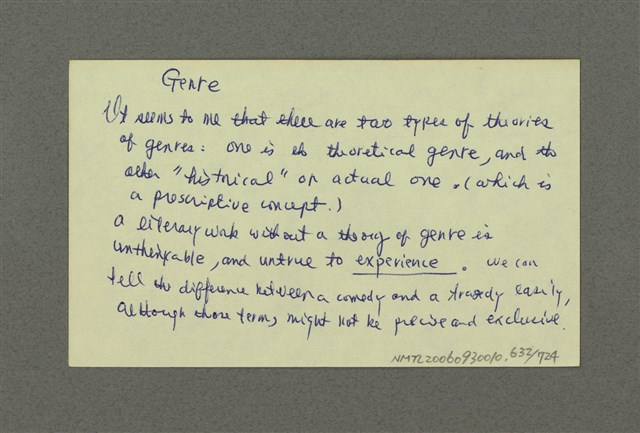 Genre
It seems to me that there are two types of theories
of genres: one is the theoretical genre, and the
other "historical" or actual one. (which is
a prescriptive concept.)
A literary work without a theory of genre is
unthinkable, and untrue to experience. We can
tell the difference between a comedy and a tragedy easily,
although those terms might not be precise and exclusive.
NMTL20060930010.632/724